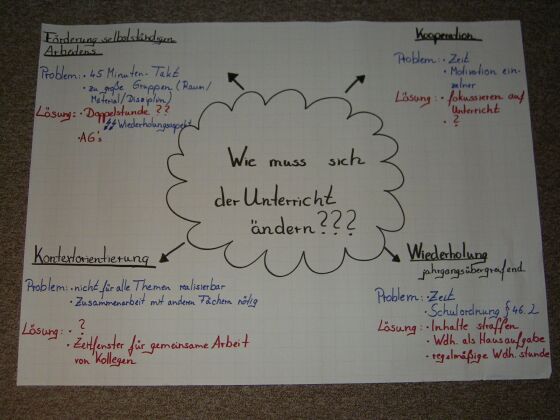 Förderung selbstständigen
Arbeitens
Problem: • 45 Minuten-Takt
• zu große Gruppen (Raum/
Material/Disziplin)
Lösung: • Doppelstunde ??
Wiederholungsaspekt
• AG's
Kooperation
Problem: • Zeit
• Motivation ein-
zelner
Lösung: • fokussieren auf
Unterricht
• ?
Wie muss sich
der Unterricht
ändern???
Kontextorientierung
Problem: • nicht für alle Themen realisierbar
• Zusammenarbeit mit anderen Fächern nötig
Lösung: • ?
• Zeitfenster für gemeinsame Arbeit
von Kollegen
Wiederholung
jahrgangsübergreifend
Problem: • Zeit
• Schulordnung § 46.2
Lösung: • Inhalte straffen
• Wdh. als Hausaufgabe
• regelmäßige Wdh. stunde